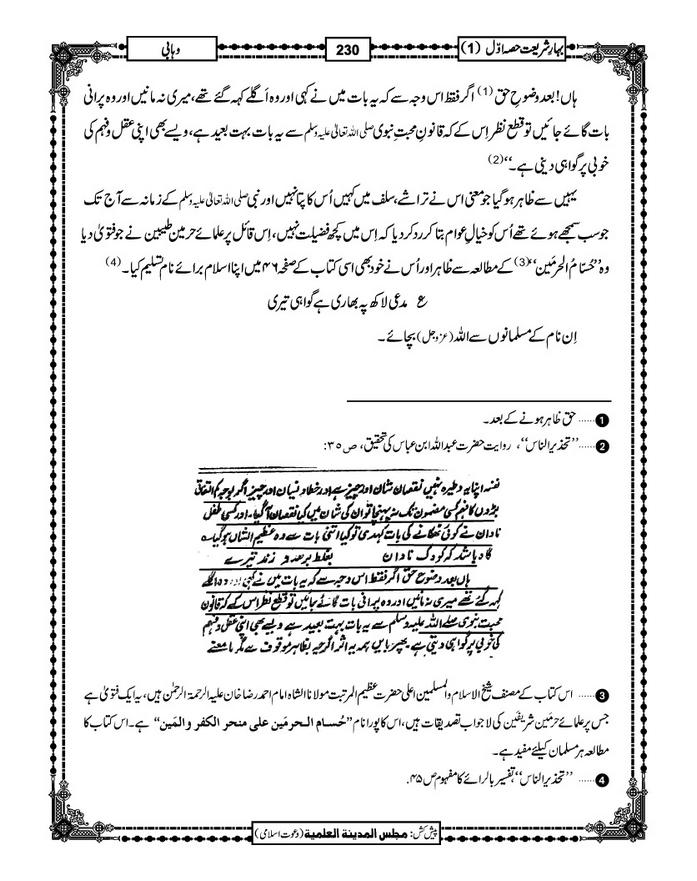 بہارِ شریعت حصہ اوّل (1)
230
وہابی
ہاں! بعد وضوحِ حق (1) اگر فقط اس وجہ سے کہ یہ بات میں نے کہی اور وہ اَگلے کہہ گئے تھے، میری نہ مانیں اور وہ پرانی
بات گائے جائیں تو قطع نظر اِس کے کہ قانونِ محبتِ نبوی صلی اللہ تعالیٰ علیہ وسلم سے یہ بات بہت بعید ہے، ویسے بھی اپنی عقل و فہم کی
خوبی پر گواہی دینی ہے۔‘‘ (2)
یہیں سے ظاہر ہو گیا جو معنی اس نے تراشے، سلف میں کہیں اُس کا پتا نہیں اور نبی صلی اللہ تعالیٰ علیہ وسلم کے زمانہ سے آج تک
جو سب سمجھے ہوئے تھے اُس کو خیالِ عوام بتا کر رد کر دیا کہ اِس میں کچھ فضیلت نہیں، اِس قائل پر علمائے حرمین طیبین نے جو فتویٰ دیا
وہ ’’حُسَامُ الحرَمَین‘‘ (3) کے مطالعہ سے ظاہر اور اُس نے خود بھی اسی کتاب کے صفحہ ۴۶ میں اپنا اسلام برائے نام تسلیم کیا۔ (4)
ع مدعی لاکھ پہ بھاری ہے گواہی تیری
اِن نام کے مسلمانوں سے اللہ (عزوجل) بچائے۔
1 ...... حق ظاہر ہونے کے بعد۔
2 ...... ’’تحذیر الناس‘‘، روایت حضرت عبد اللہ ابن عباس کی تحقیق، ص ۳۵:
نقصان شان اور چیز ہے اور خطا و نسیان اور چیز اگر بوجہ کم التفاتی
بڑوں کا فہم کسی مضمون تک نہ پہنچا تو ان کی شان میں کیا نقصان آگیا۔ اور کسی طفل
نادان نے کوئی ٹھکانے کی بات کہدی تو کیا اتنی بات سے وہ عظیم الشان ہوگیا۔
گاہ باشد کہ کودک نادان بغلط بر ہدف زند تیرے
ہاں بعد وضوح حق اگر فقط اس وجہ سے کہ یہ بات میں نے کہی اور وہ اگلے
کہہ گئے تھے میری نہ مانیں اور وہ پرانی بات گائے جائیں تو قطع نظر اس کے کہ قانون
محبت نبوی صلے اللہ علیہ وسلم سے یہ بات بہت بعید ہے ویسے بھی اپنی عقل و فہم
کی خوبی پر گواہی دینی ہے۔ پھر بایں ہمہ یہ اثر اگرچہ بظاہر موقوف ہے مگر بالمعنے
3 ...... اس کتاب کے مصنف شیخ الاسلام والمسلمین اعلی حضرت عظیم المرتبت مولانا الشاہ امام احمد رضا خان علیہ الرحمۃ الرحمٰن ہیں، یہ ایک فتویٰ ہے
جس پر علمائے حرمین شریفین کی لاجواب تصدیقات ہیں، اس کا پورا نام ’’حُسام الحرمَین علی منحر الکفر والمَین‘‘ ہے۔ اس کتاب کا
مطالعہ ہر مسلمان کیلئے مفید ہے۔
4 ...... ’’تحذیر الناس‘‘، تفسیر بالرائے کا مفہوم ص ۴۵.
پیش کش: مجلس المدینۃ العلمیۃ (دعوت اسلامی)